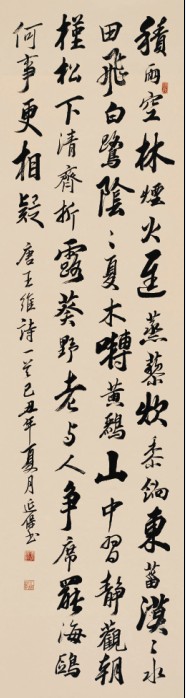 積雨空林煙火遲蒸藜炊黍餉東菑漠〻水
田飛白鷺陰〻夏木囀黃鸝山中習靜觀朝
槿松下清齋折露葵野老與人爭席罷海鷗
何事更相疑
唐王維詩一首己丑年夏月延俊書